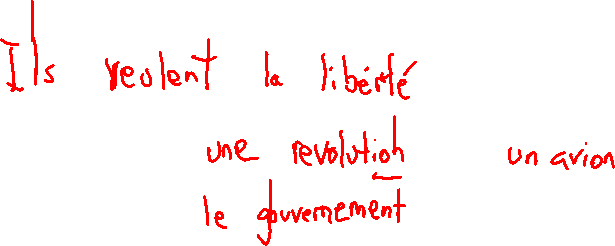 Ils veulent la libérté
une revolution un avion
le gouvernement